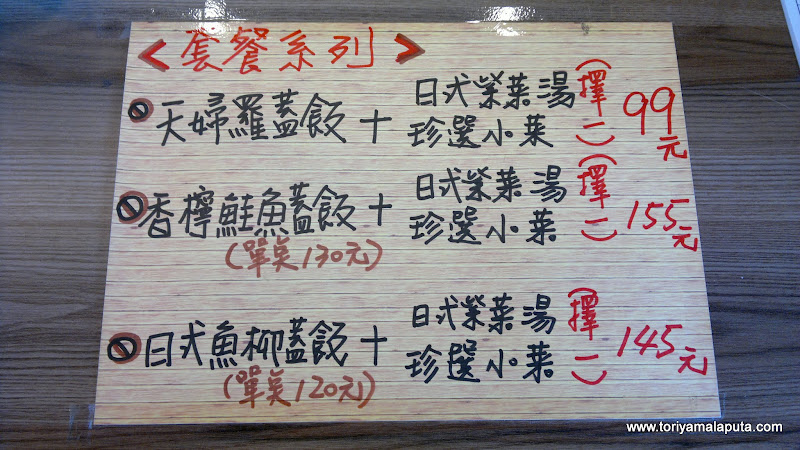 <套餐系列>
天婦羅蓋飯+ 日式紫菜湯 珍選小菜 (擇一) 99元
香檸鮭魚蓋飯+ 日式紫菜湯 珍選小菜 (擇一) 155元
(單点130元)
日式魚柳蓋飯+ 日式紫菜湯 珍選小菜 (擇一) 145元
(單点120元)
www.toriyamalaputa.com